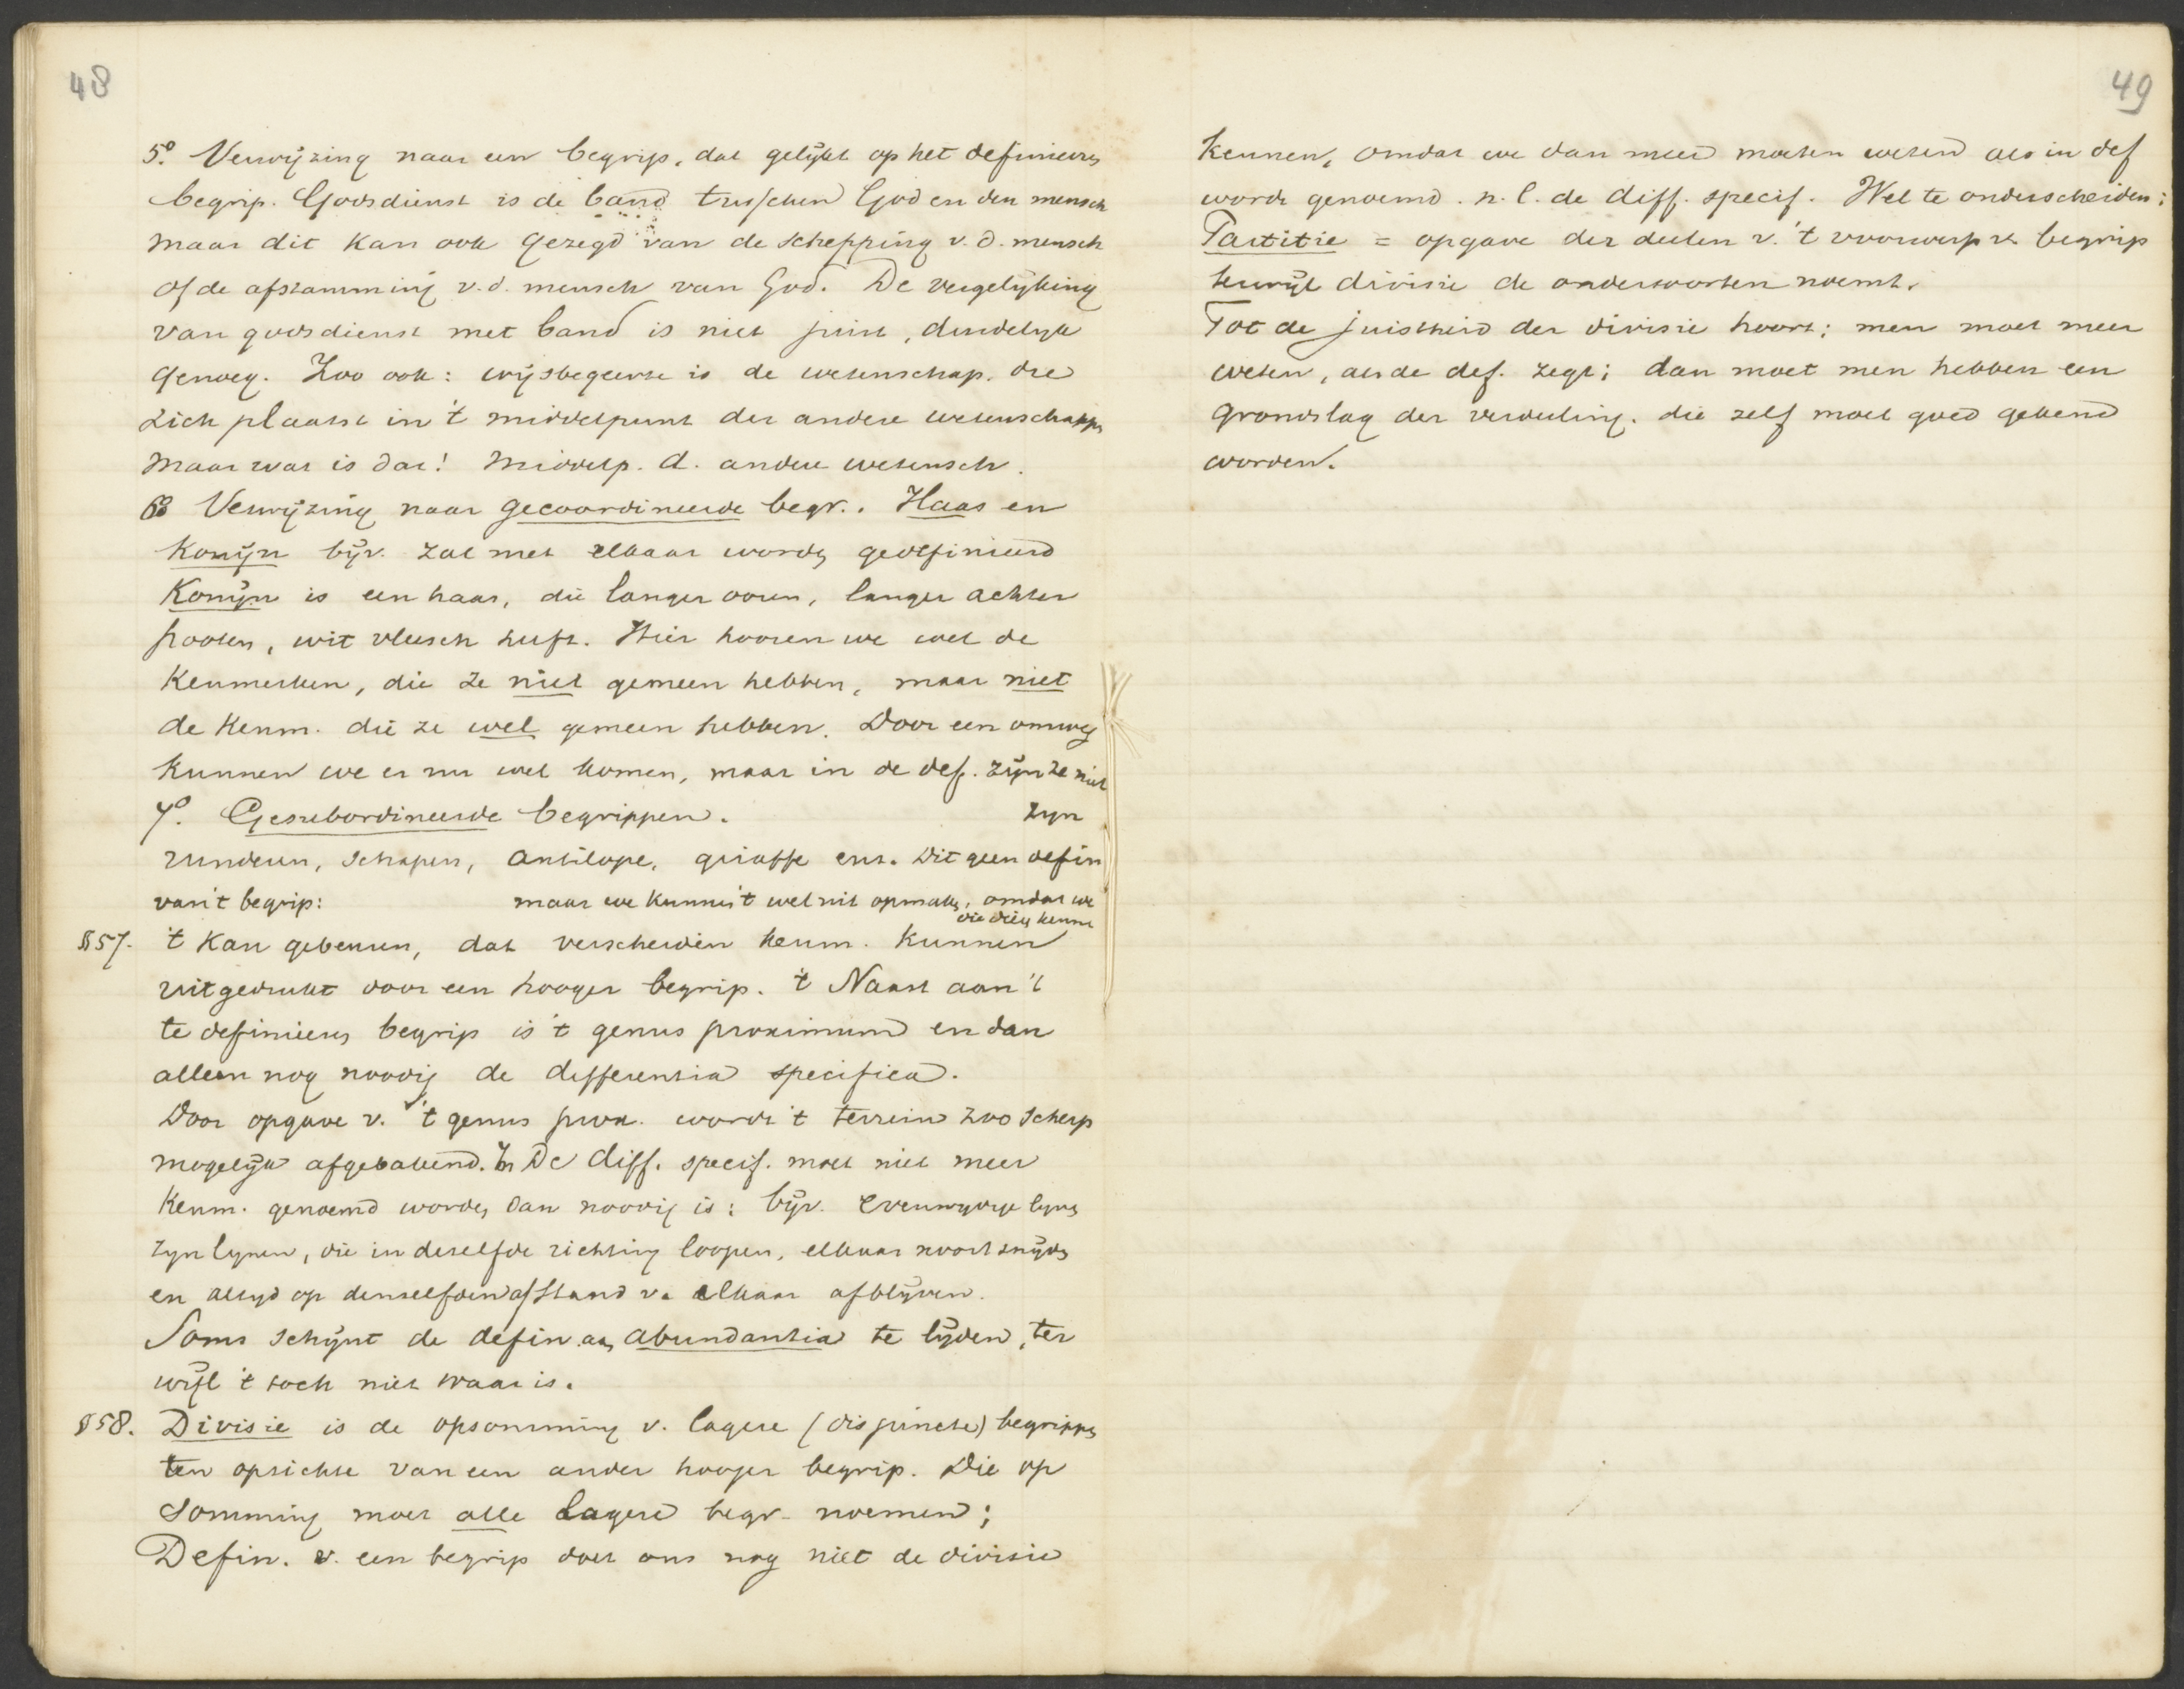 48
5o. Verwijzing naar een begrip, dat gelijkt op het definieeren
begrip. Godsdienst is de band tusschen God en den mensch
maar dit kan ook gezegd van de schepping v. d. mensch
of de afstamming v. d. mensch van God. De vergelijking
van godsdienst met band is niet juist, duidelijk
genoeg. Zoo ook: wijsbegeerte is de wetenschap. die
zich plaatst in 't middelpunt der andere wetenschappen
maar wat is dat! middelp. d. andere wetensch.
6o Verwijzing naar gecoordineerde begr.. Haas en
Konijn bijv. zal met elkaar worden gedefinieerd
Konijn is een haas, die langer ooren, langer achter
pooten, wit vleesch heeft. Hier hooren we wel de
kenmerken, die ze niet gemeen hebben, maar niet
de kenm. die ze wel gemeen hebben. Door een omweg
kunnen we er nu wel komen, maar in de def. zijn ze niet
7o. Gesubordineerde begrippen. zijn
runderen, schapen, antilope, giraffe enz. Dit geen defin
van 't begrip: maar we kunnen 't wel uit opmaken, omdat we
die dieren kennen
§57. 't Kan gebeuren, dat verscheiden kenm. kunnen
uitgedrukt door een hooger begrip. 't Naast aan 't
te definieeren begrip is 't genus proximum en dan
alleen nog noodig de differentia specifica.
Door opgave v. 't genus prox. wordt 't terrein zoo scherp
mogelijk afgebakend. In De diff. specif. moet niet meer
kenm. genoemd worden dan noodig is: bijv. evenwijdige lijnen
zijn lijnen, die in dezelfde richting loopen, elkaar nooit snijden
en altijd op denzelfden afstand v. elkaar afblijven.
Soms schijnt de defin. aan abundantia te lijden, ter
wijl 't toch niet waar is.
§58. Divisie is de opsomming v. lagere (disjuncte) begrippen
ten opzichte van een ander hooger begrip. Die op
somming moet alle lagere begr. noemen;
Defin. v. een begrip doet ons nog niet de divisie
49
kennen, omdat we dan meer moeten weten als in def
wordt genoemd. n. l. de diff. specif. Wel te onderscheiden:
Partitie = opgave der deelen v. 't voorwerp v. begrip
terwijl divisie de ondersoorten noemt.
Tot de juistheid der divisie hoort: men moet meer
weten, als de def. zegt; dan moet men hebben een
grondslag der verdeeling. die zelf moet goed gekend
worden.